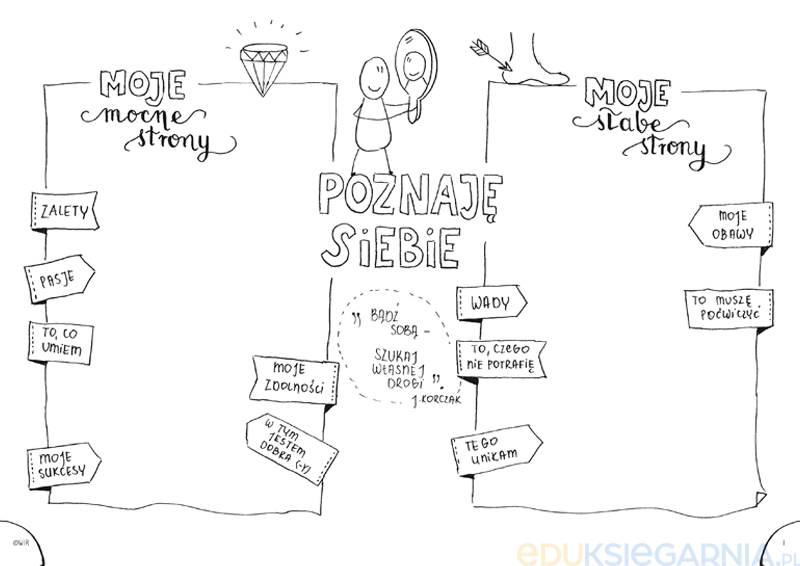 MOJE
mocne
strony
ZALETY
PASJE
TO, CO
UMIEM
MOJE
SUKCESY
MOJE
ZDOLNOŚCI
W TYM
JESTEM
DOBRA (-Y)
POZNAJĘ
SIEBIE
„ BĄDŹ
SOBĄ –
SZUKAJ
WŁASNEJ
DROGI ”.
J. KORCZAK
MOJE
słabe
strony
WADY
TO, CZEGO
NIE POTRAFIĘ
TEGO
UNIKAM
MOJE
OBAWY
TO MUSZĘ
POĆWICZYĆ
©WIR
1
EDUKSIEGARNIA.PL